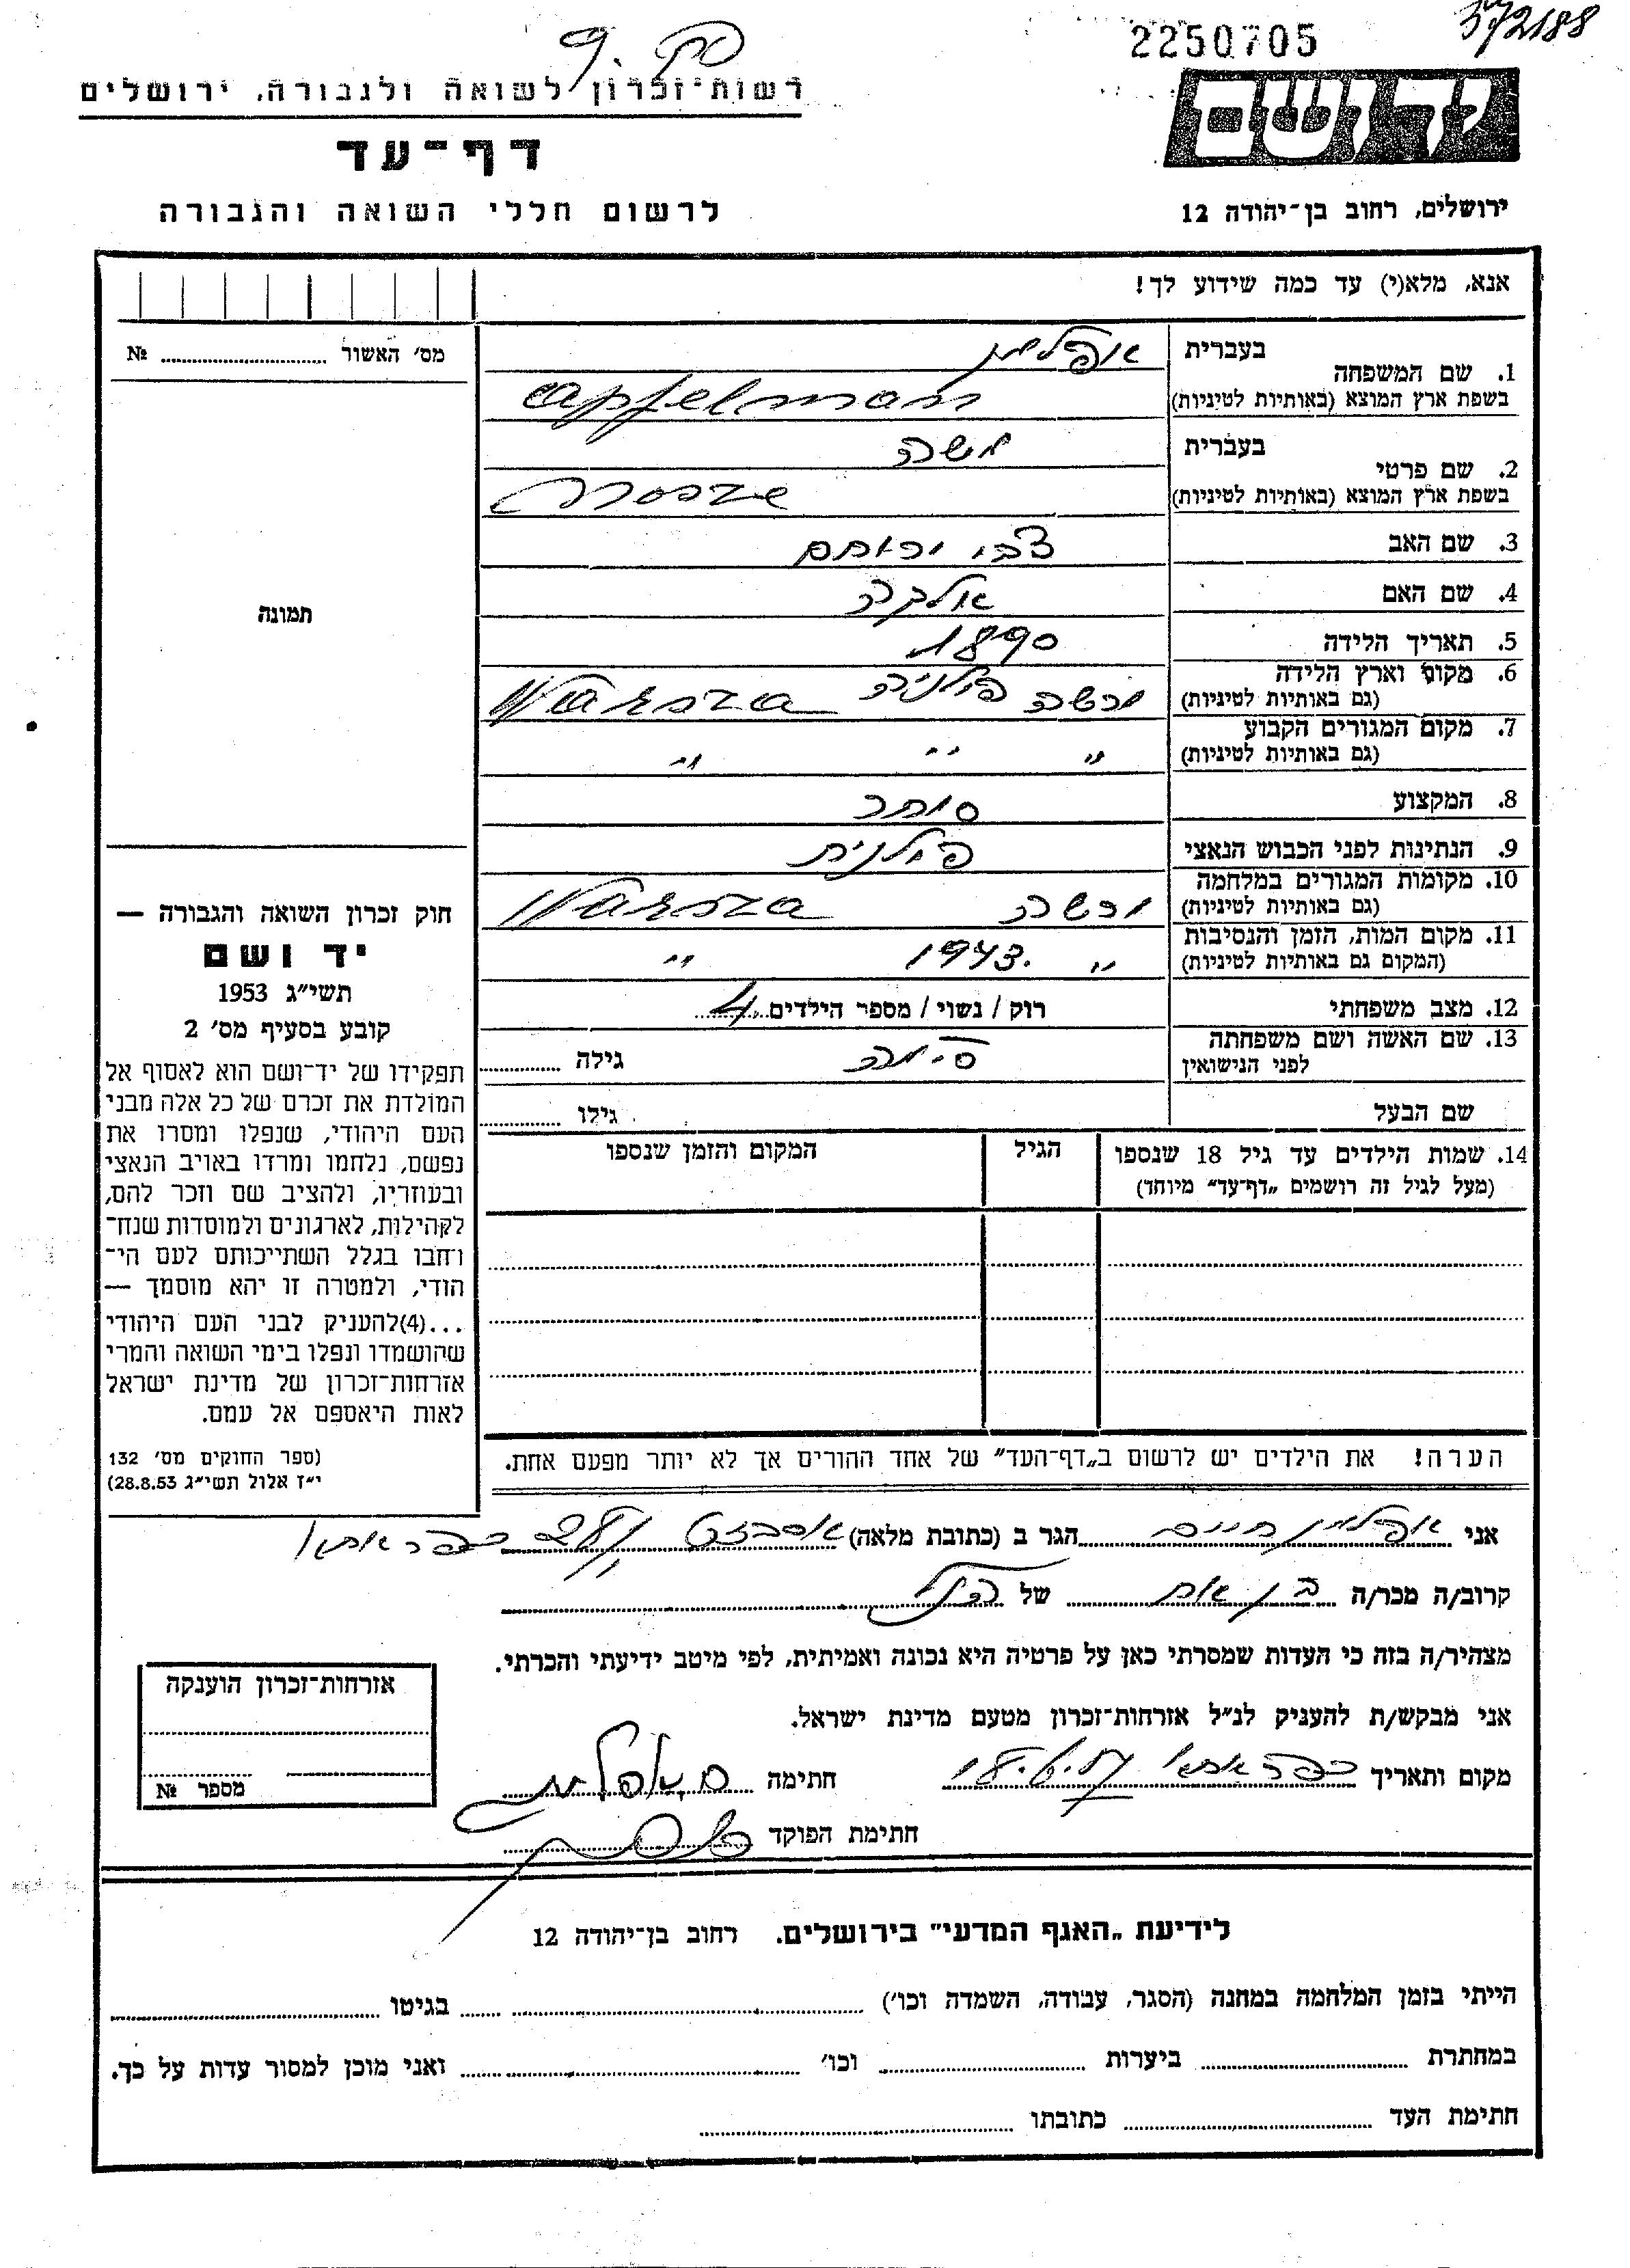 2250705
372188
רשות־זכרון לשואה ולגבורה, ירושלים
יד ושם
דף־עד
לרשום חללי השואה והגבורה
ירושלים, רחוב בן־יהודה 12
אנא, מלא(י) עד כמה שידוע לך!
מס׳ האשור № ........
1. שם המשפחה
בעברית אפלמן
בשפת ארץ המוצא (באותיות לטיניות) apfelman
2. שם פרטי
בעברית משה
בשפת ארץ המוצא (באותיות לטיניות)
3. שם האב צבי ירוחם
4. שם האם
5. תאריך הלידה 1890
6. מקום וארץ הלידה ורשה פולניה Warsza
(גם באותיות לטיניות)
7. מקום המגורים הקבוע " " "
(גם באותיות לטיניות)
8. המקצוע סוחר
9. הנתינות לפני הכבוש הנאצי פולנית
10. מקומות המגורים במלחמה ורשה Warsza
(גם באותיות לטיניות)
11. מקום המות, הזמן והנסיבות " 1943. "
(המקום גם באותיות לטיניות)
12. מצב משפחתי רוק / נשוי / מספר הילדים 4
13. שם האשה ושם משפחתה
לפני הנישואין גילה ........
שם הבעל גילו ........
14. שמות הילדים עד גיל 18 שנספו הגיל המקום והזמן שנספו
(מעל לגיל זה רושמים „דף־עד״ מיוחד)
תמונה
חוק זכרון השואה והגבורה —
יד ושם
תשי״ג 1953
קובע בסעיף מס׳ 2
תפקידו של יד־ושם הוא לאסוף אל
המולדת את זכרם של כל אלה מבני
העם היהודי, שנפלו ומסרו את
נפשם, נלחמו ומרדו באויב הנאצי
ובעוזריו, ולהציב שם וזכר להם,
לקהילות, לארגונים ולמוסדות שנח־
רחבו בגלל השתייכותם לעם הי־
הודי, ולמטרה זו יהא מוסמך —
...(4)להעניק לבני העם היהודי
שהושמדו ונפלו בימי השואה והמרי
אזרחות־זכרון של מדינת ישראל
לאות היאספם אל עמם.
(ספר החוקים מס׳ 132
י״ז אלול תשי״ג 28.8.53)
הערה! את הילדים יש לרשום ב„דף־העד״ של אחד ההורים אך לא יותר מפעם אחת.
אני אפלמן חיים הגר ב (כתובת מלאה) כפר אתא
קרוב/ה מכר/ה בן אח של הנ״ל
מצהיר/ה בזה כי העדות שמסרתי כאן על פרטיה היא נכונה ואמיתית, לפי מיטב ידיעתי והכרתי.
אני מבקש/ת להעניק לנ״ל אזרחות־זכרון מטעם מדינת ישראל.
מקום ותאריך כפר אתא חתימה ח. אפלמן
חתימת הפוקד
אזרחות־זכרון הוענקה
מספר №
לידיעת „האגף המדעי״ בירושלים. רחוב בן־יהודה 12
הייתי בזמן המלחמה במחנה (הסגר, עבודה, השמדה וכו׳) ........ בגיטו ........
במחתרת ........ ביערות ........ וכו׳ ........ ואני מוכן למסור עדות על כך.
חתימת העד ........ כתובתו ........